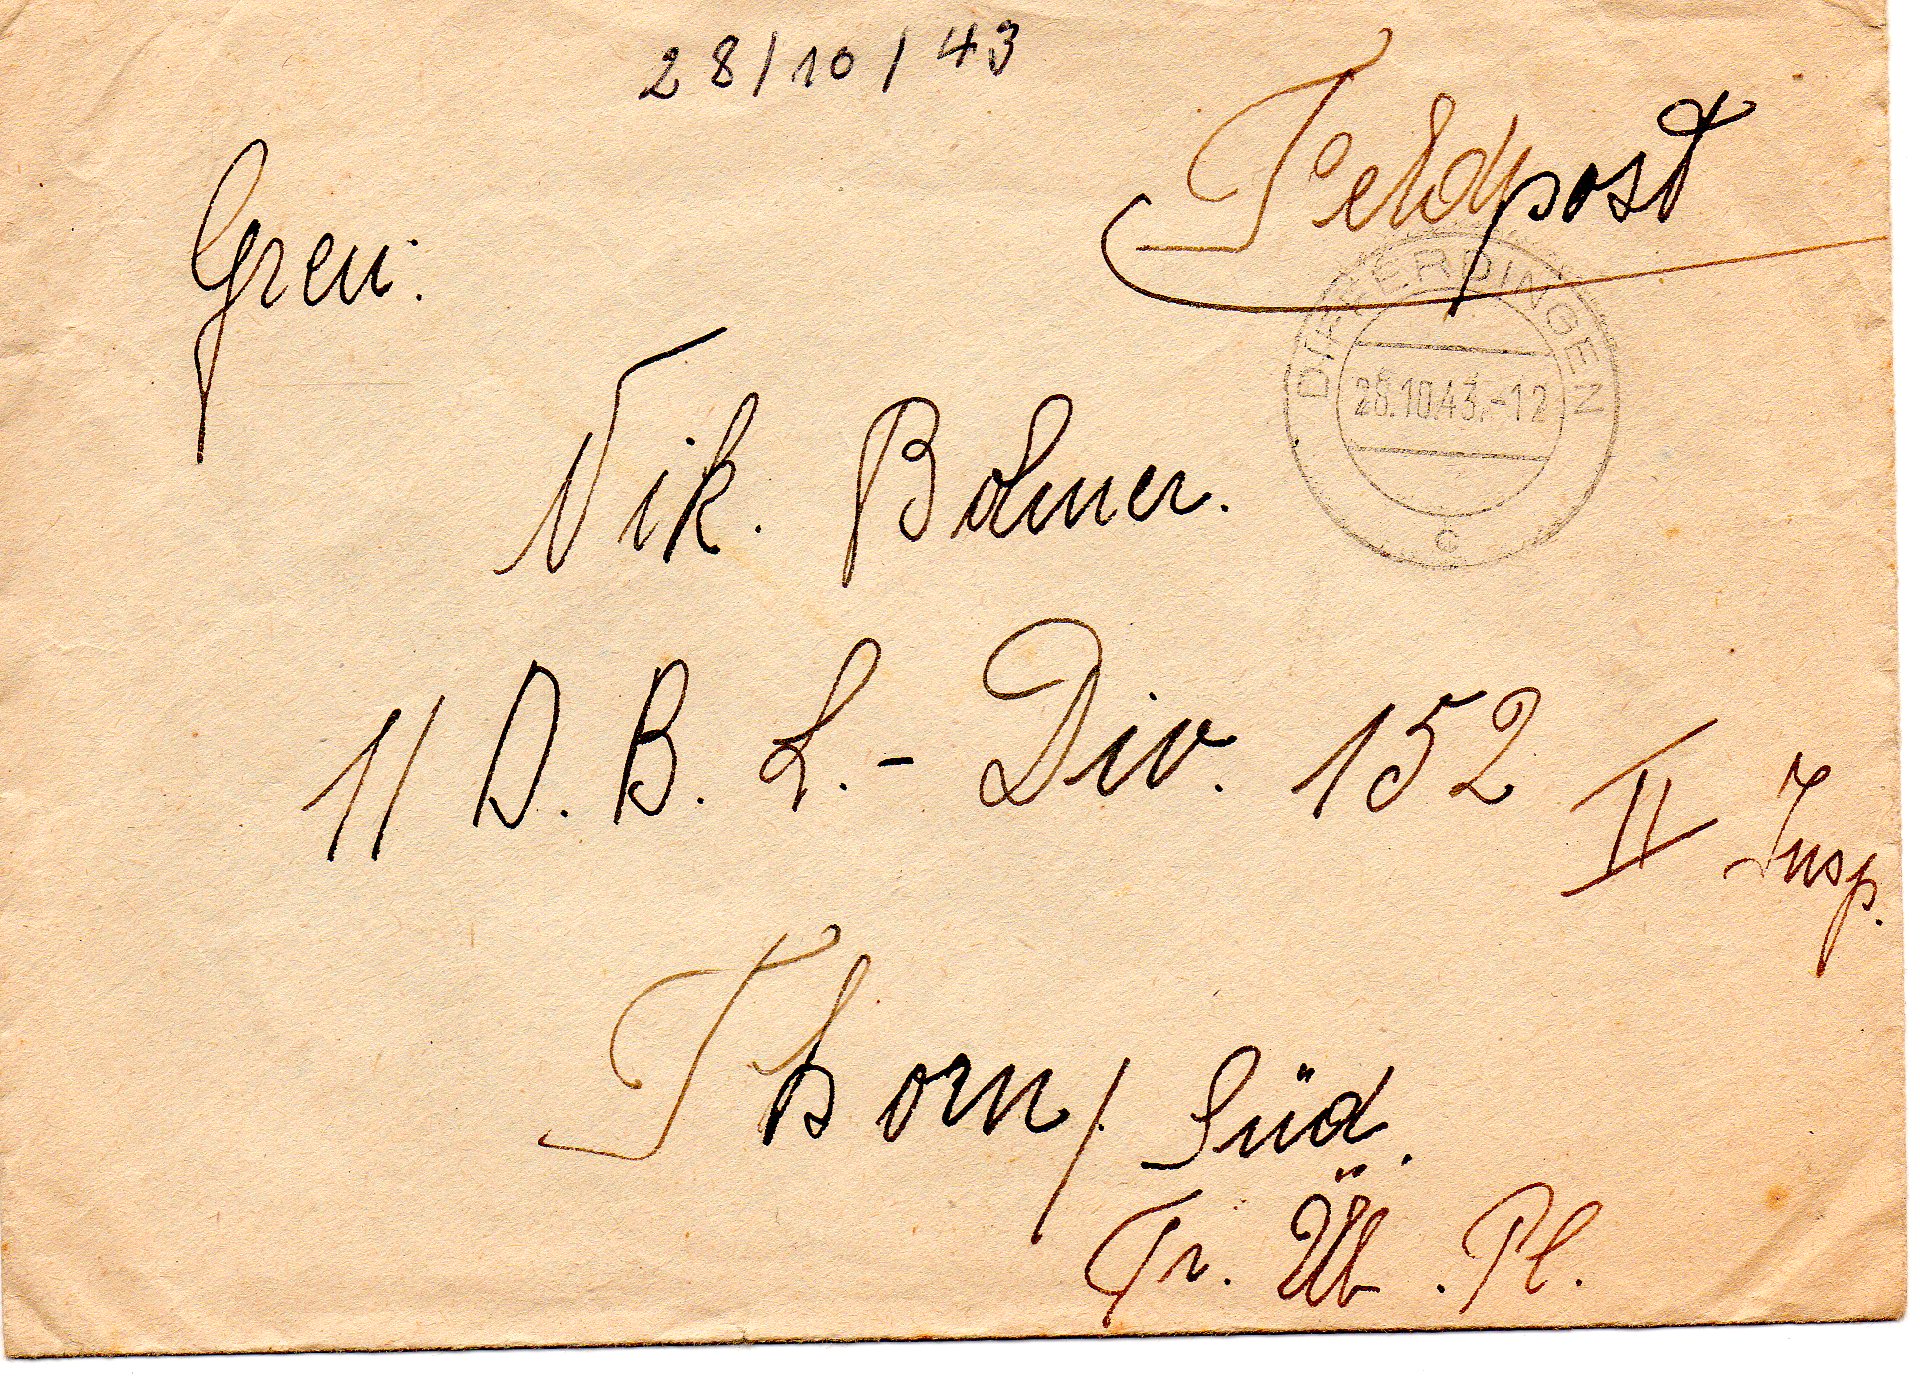 28/10/43
Feldpost
Gren.
DIFFERDINGEN
28.10.43.-12
c
Nik. Bohmer.
11 D. B. L.- Div. 152 II Insp.
Thorn / Süd.
Tr. Üb. Pl.